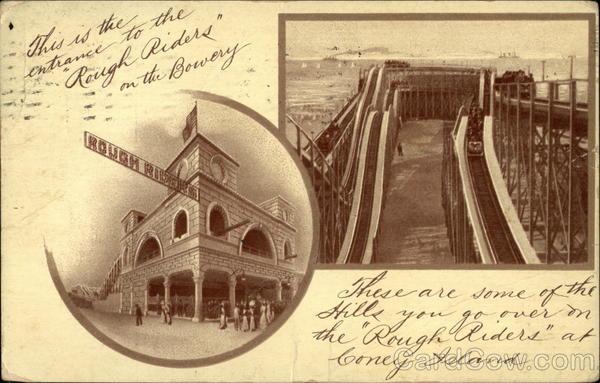 This is the
entrance to the
"Rough Riders"
on the Bowery
ROUGH RIDERS
These are some of the
Hills you go over on
the "Rough Riders" at
Coney Island
CardCow.com